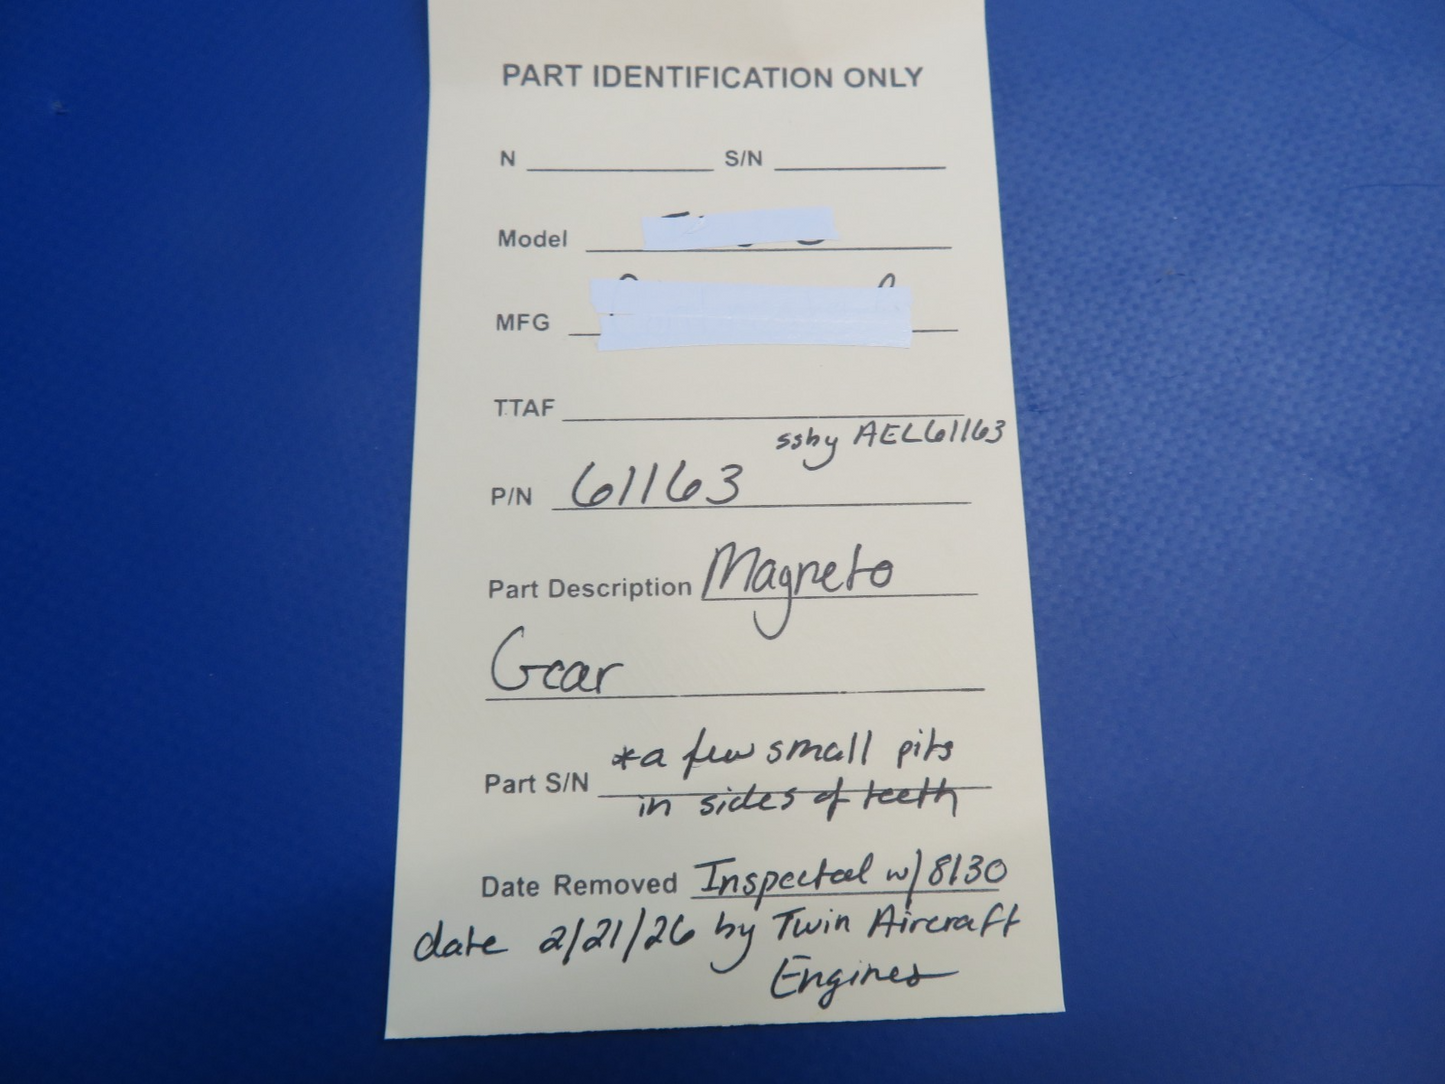 PART IDENTIFICATION ONLY
N S/N
Model
MFG
TTAF
ssby AEL61163
P/N 61163
Part Description Magneto
Gear
*a few small pits
Part S/N
in sides of teeth
Date Removed Inspected w/ 8130
date 2/21/26 by Twin Aircraft
Engines